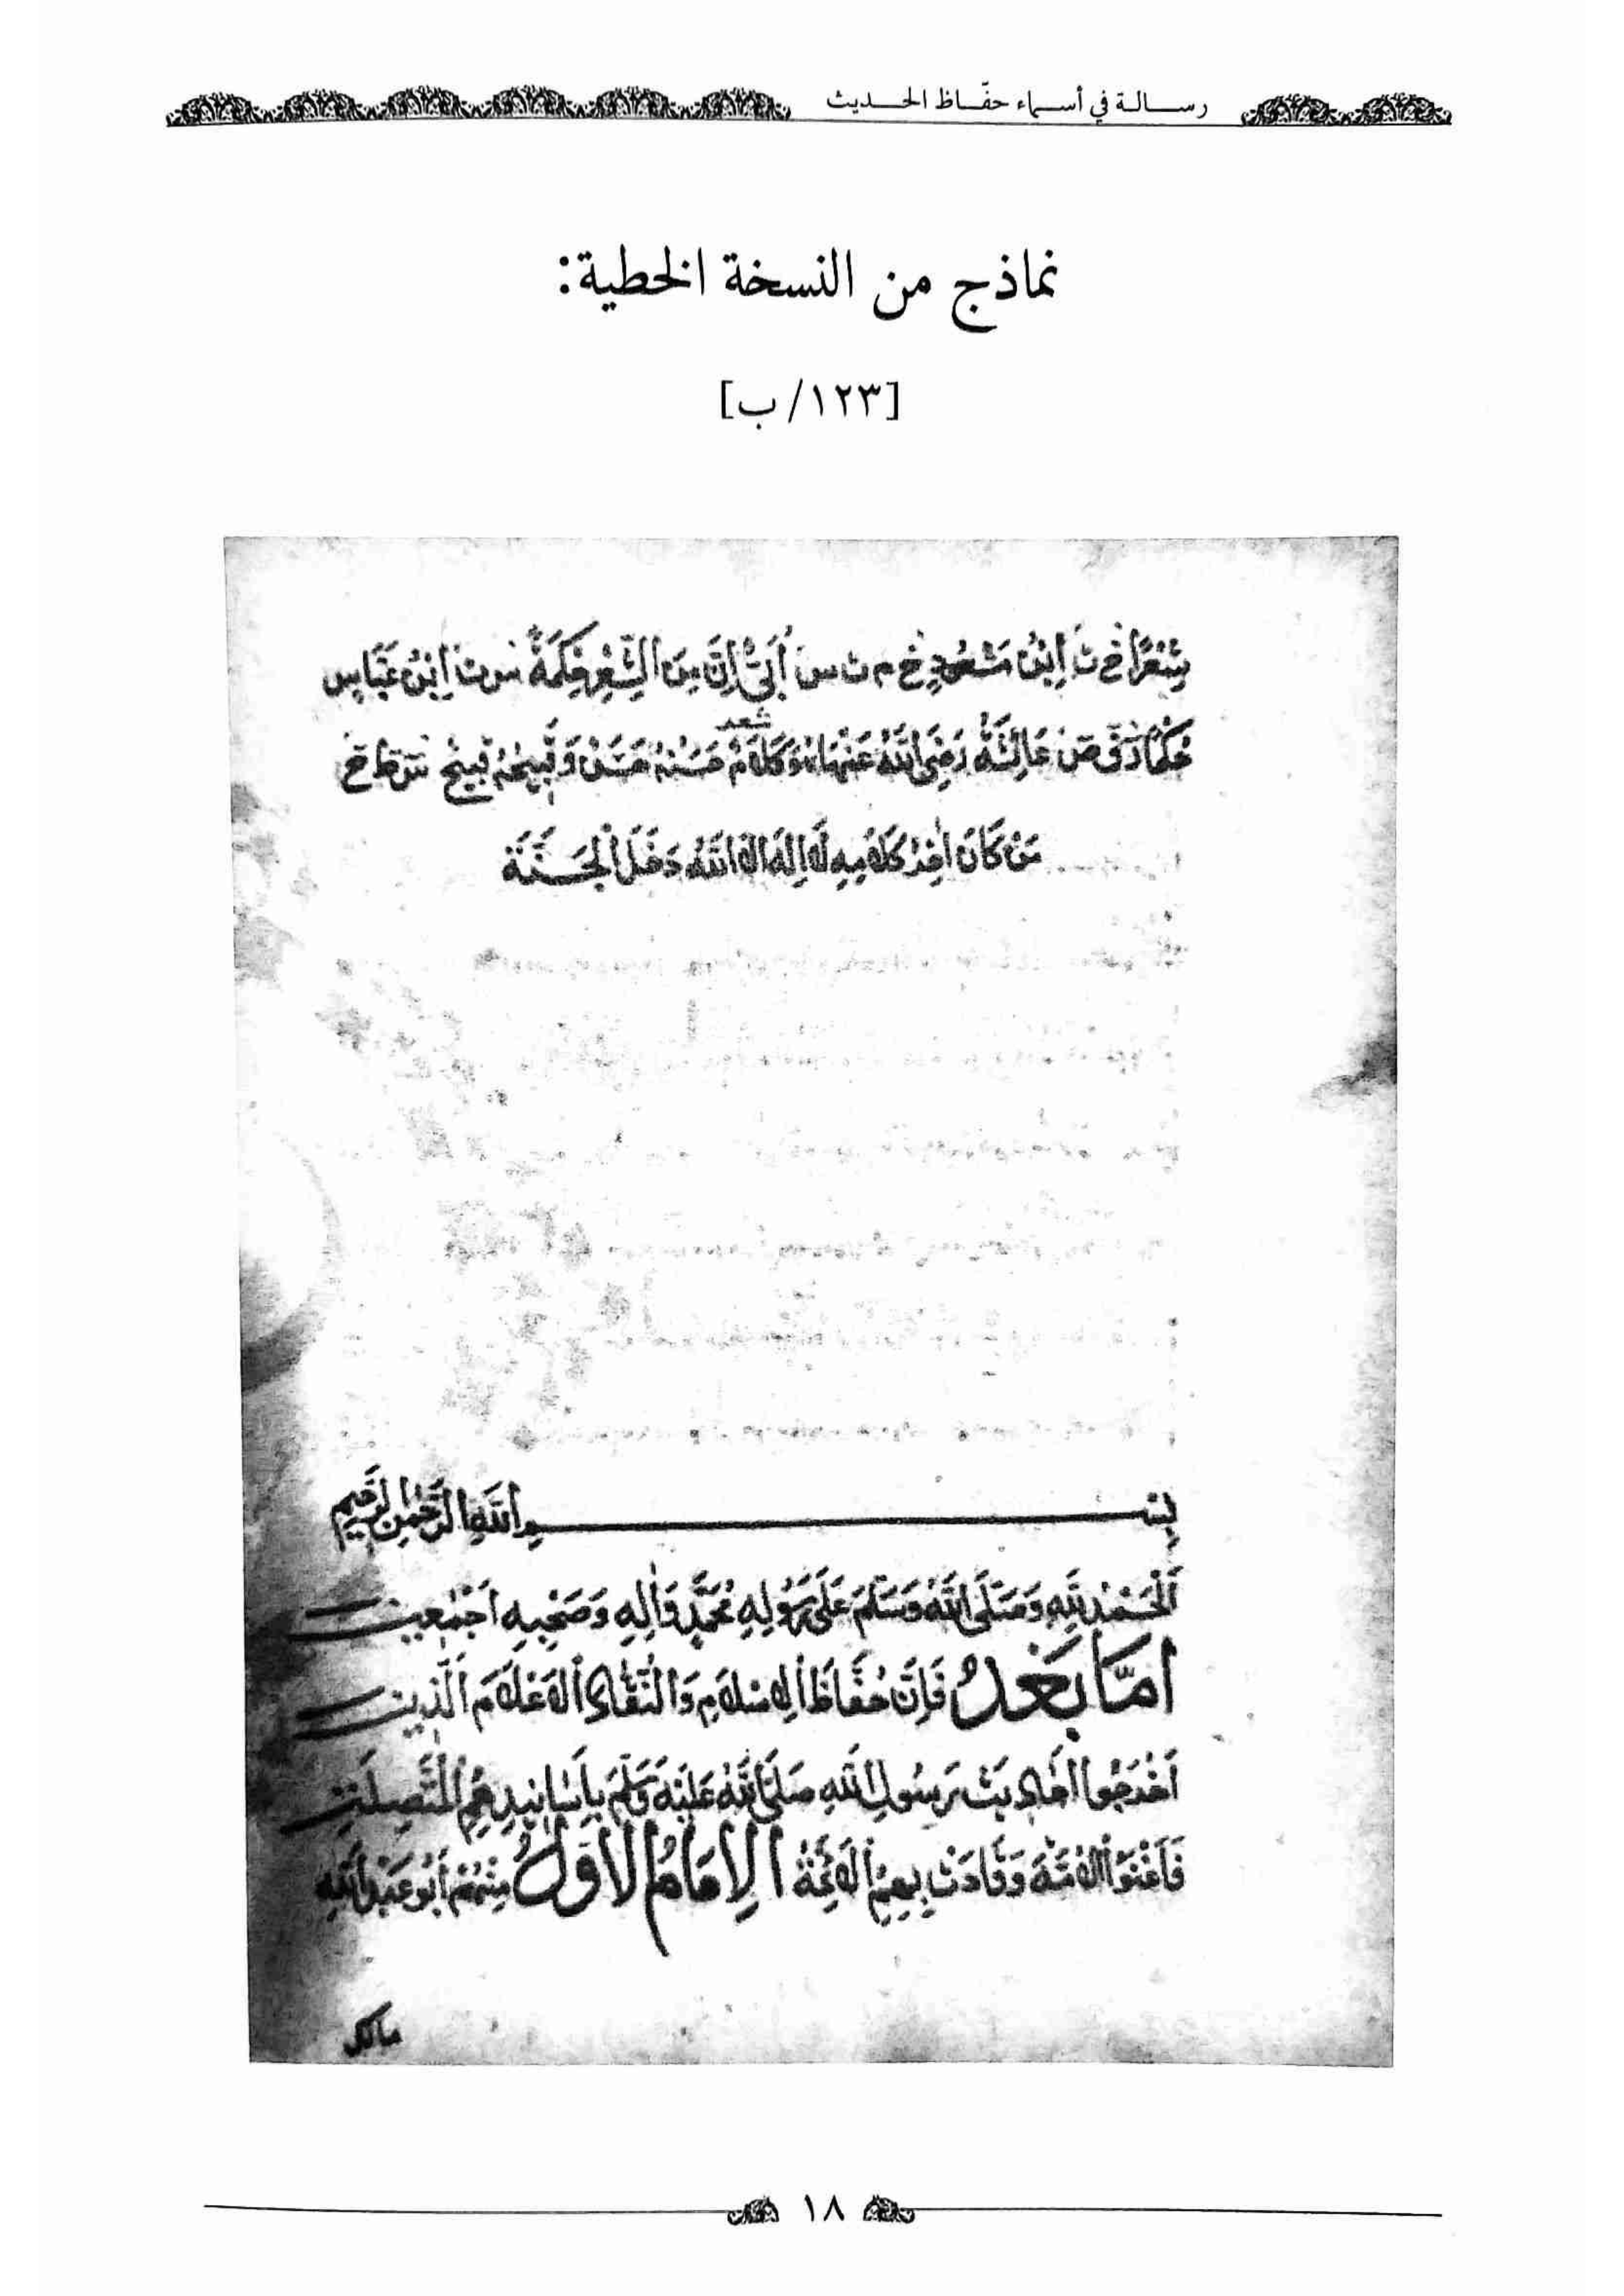 رسالة في أسماء حفّاظ الحديث
نماذج من النسخة الخطية:
[١٢٣/ ب]
شِعْرًا خ ت اِبْنُ مَسْعُودٍ خ م ت س أُبَيّ إِنَّ مِنَ الشِّعْرِ حِكْمَةً ت اِبْنُ عَبَّاسٍ
حُكْمًا عَائِشَةُ رَضِيَ اللهُ عَنْهَا هُوَ كَلَامٌ حَسَنُهُ حَسَنٌ وَقَبِيحُهُ قَبِيحٌ
شعر
مَنْ كَانَ اٰخِرُ كَلَامِهِ لَا اِلٰهَ اِلَّا اللهُ دَخَلَ الْجَنَّةَ
بِسْمِ اللهِ الرَّحْمٰنِ الرَّحِيمِ
اَلْحَمْدُ لِلهِ وَصَلَّى اللهُ وَسَلَّمَ عَلَى رَسُولِهِ مُحَمَّدٍ وَاٰلِهِ وَصَحْبِهِ اَجْمَعِينَ
اَمَّا بَعْدُ فَاِنَّ حُفَّاظَ الْاِسْلَامِ وَالنُّقَّادَ الْاَعْلَامَ الَّذِينَ
اَخْرَجُوا اَحَادِيثَ رَسُولِ اللهِ صَلَّى اللهُ عَلَيْهِ وَسَلَّمَ بِاَسَانِيدِهِمُ الْمُتَّصِلَةِ
الْاُمَّةَ وَقَادَتْ بِهِمُ الْاَئِمَّةُ اَلْاِمَامُ الْاَوَّلُ مِنْهُمْ أَبُو عَبْدِ اللهِ
مالك
١٨